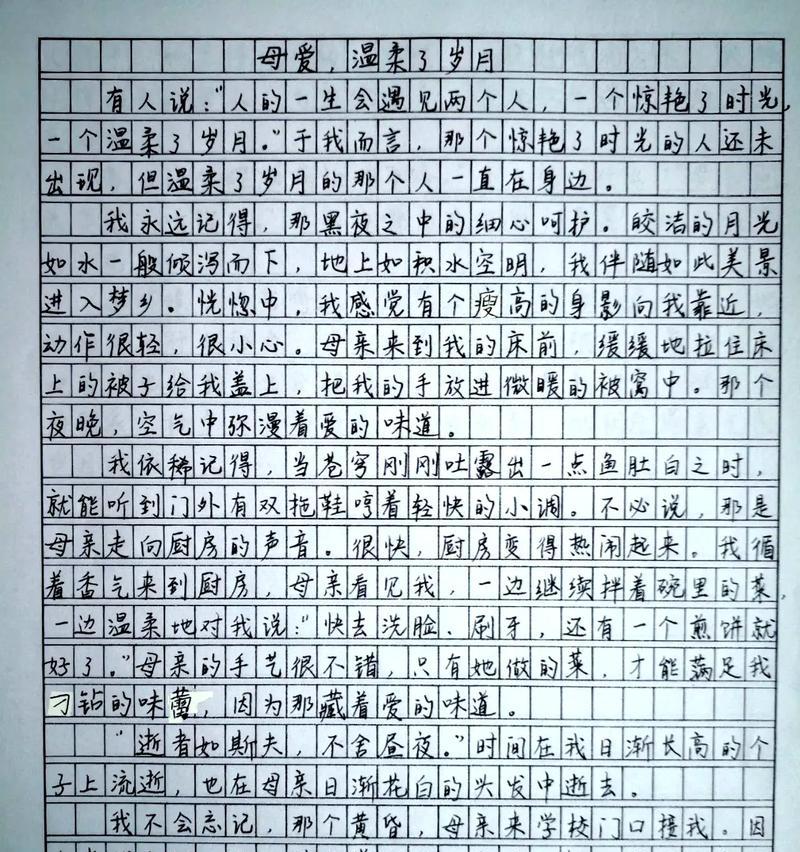 母爱，温柔了岁月
有人说：“人的一生会遇见两个人，一个惊艳了时光，
一个温柔了岁月。”于我而言，那个惊艳了时光的人还未
出现，但温柔了岁月的那个人一直在身边。
我永远记得，那黑夜之中的细心呵护。皎洁的月光
如水一般倾泻而下，地上如积水空明，我伴随如此美景
进入梦乡。恍惚中，我感觉有个瘦高的身影向我靠近，
动作很轻，很小心。母亲来到我的床前，缓缓地拉住床
上的被子给我盖上，把我的手放进微暖的被窝中。那个
夜晚，空气中弥漫着爱的味道。
我依稀记得，当苍穹刚刚吐露出一点鱼肚白之时，
就能听到门外有双拖鞋哼着轻快的小调。不必说，那是
母亲走向厨房的声音。很快，厨房变得热闹起来。我循
着香气来到厨房，母亲看见我，一边继续拌着碗里的菜，
一边温柔地对我说：“快去洗脸、刷牙，还有一个煎饼就
好了。”母亲的手艺很不错，只有她做的菜，才能满足我
刁钻的味蕾，因为那藏着爱的味道。
“逝者如斯夫，不舍昼夜。”时间在我日渐长高的个
子上流逝，也在母亲日渐花白的头发中逝去。
我不会忘记，那个黄昏，母亲来学校门口接我。因